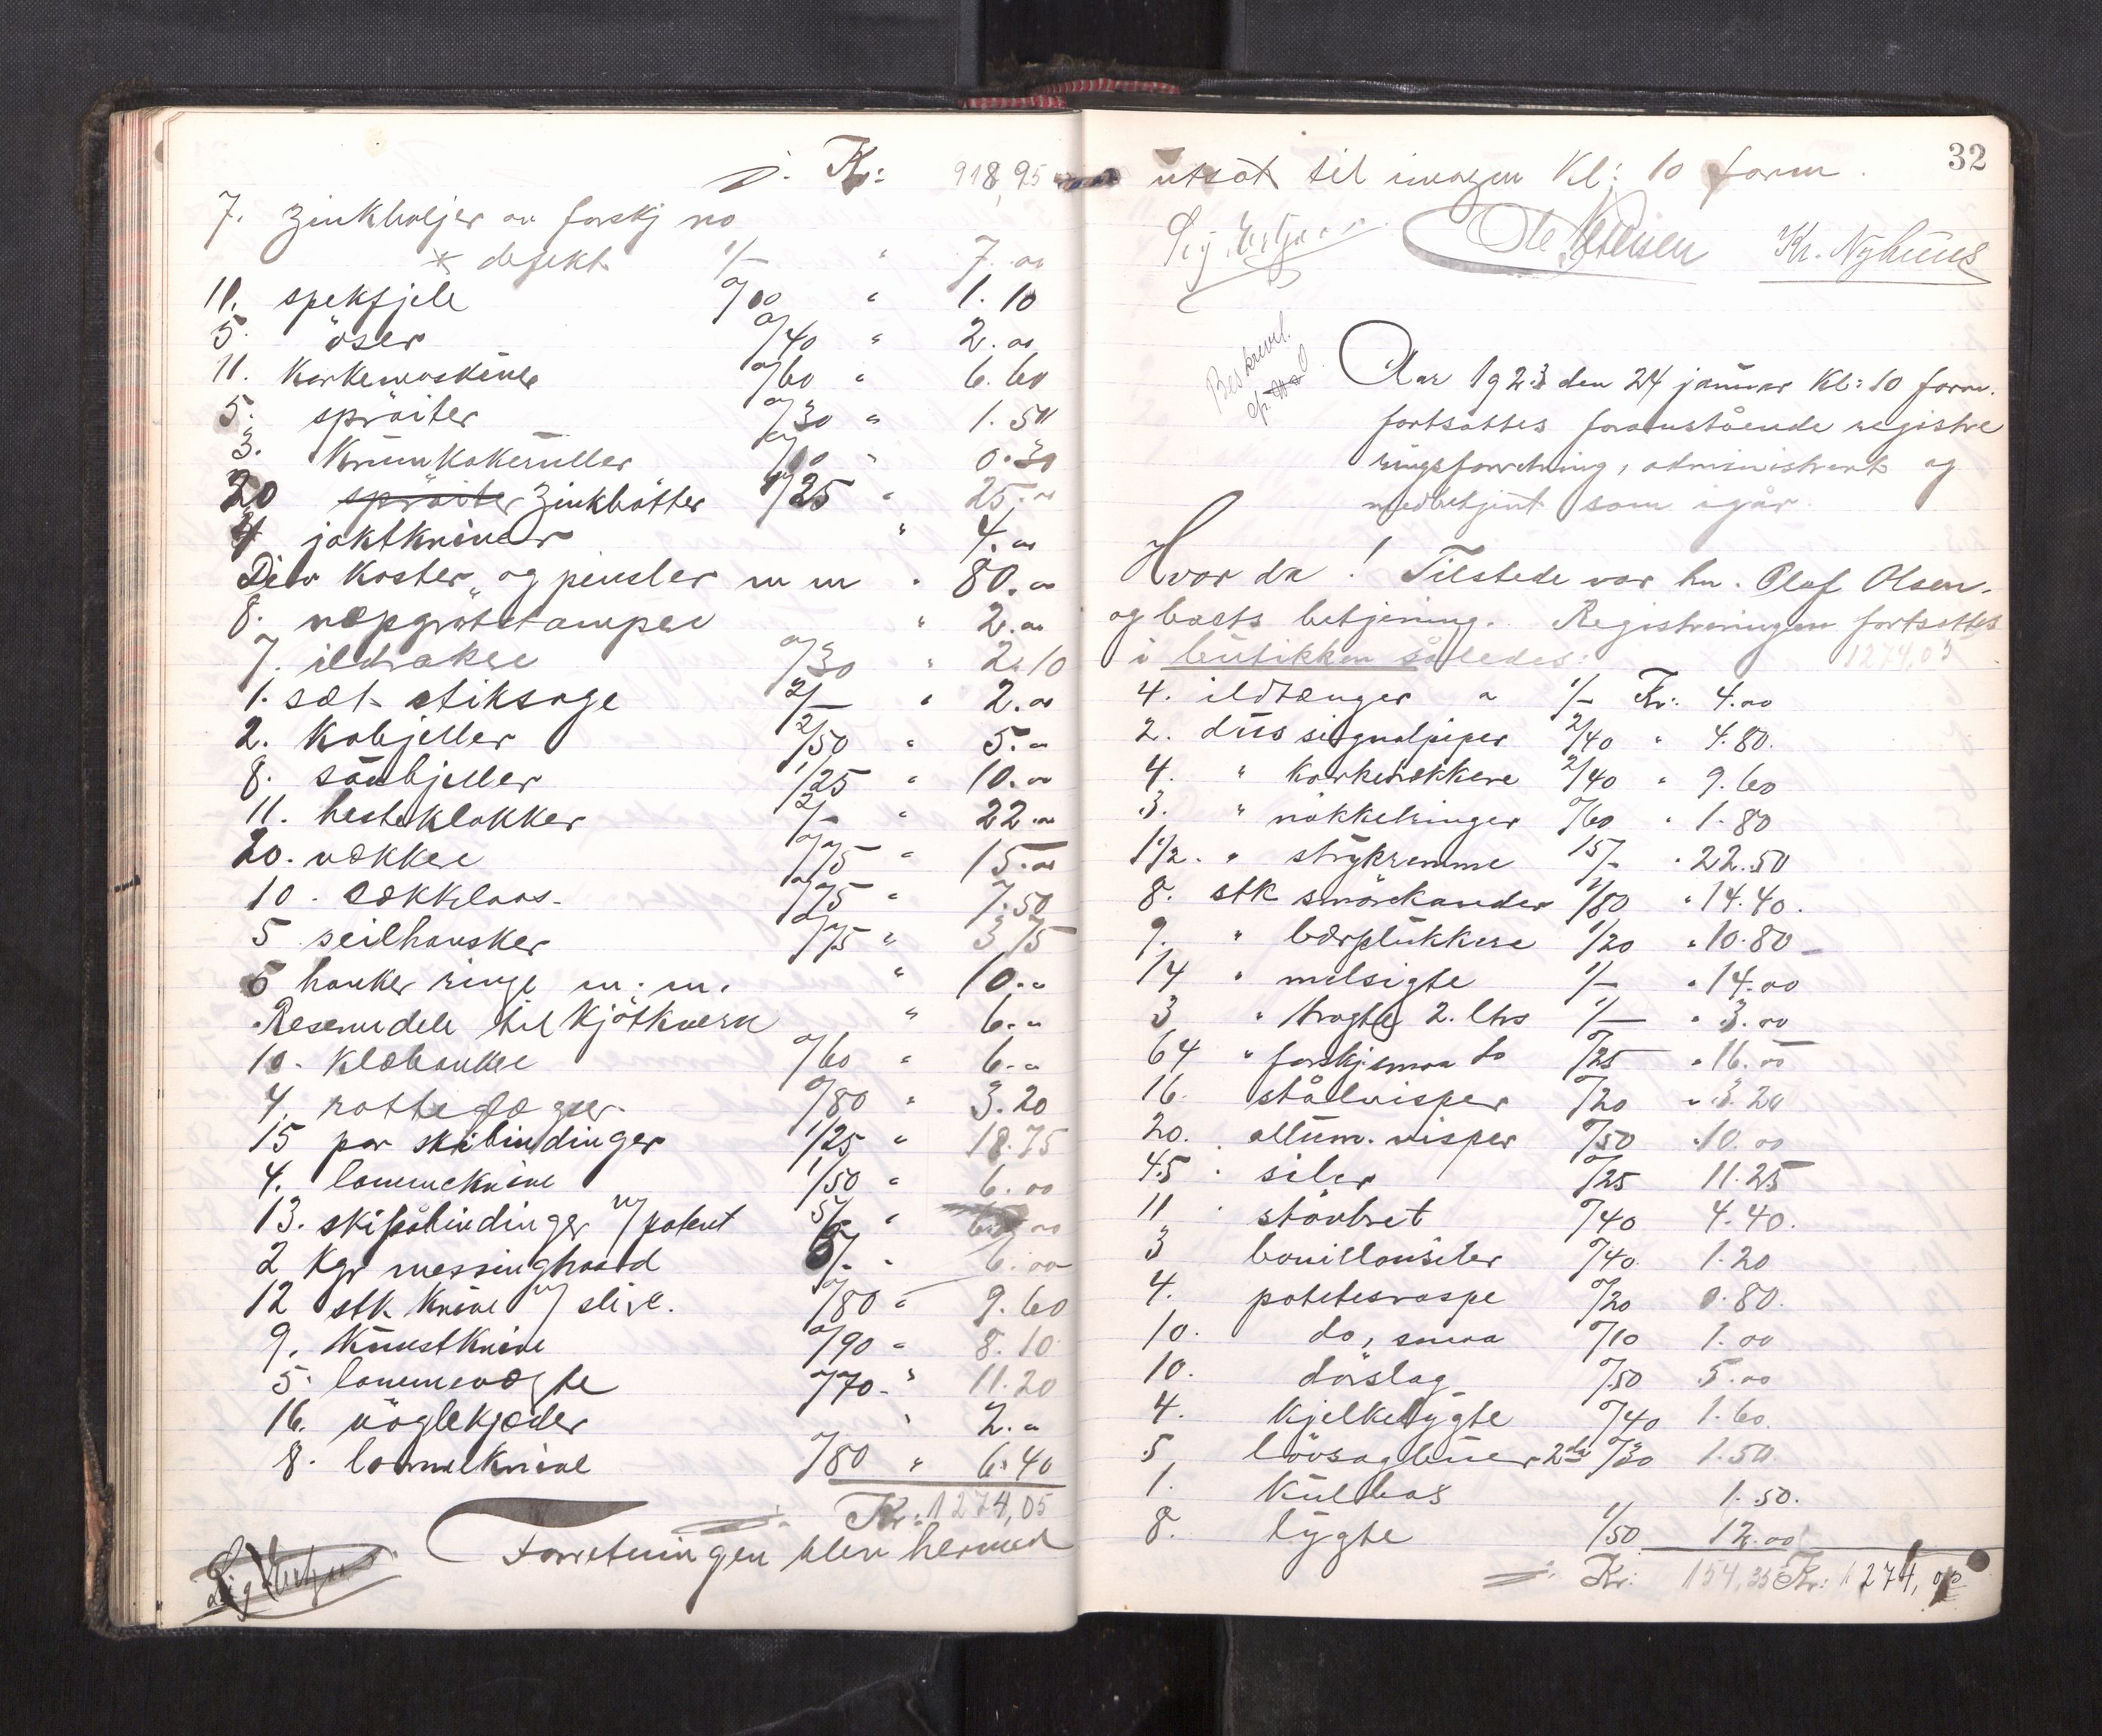 Kr: 918,95
7. Zinkbaljer av forskj no
defekt 1/- " 7.00
11. spekfjele 0/10 " 1.10
5. öser 0/40 " 2.00
11. Korkemaskiner 0/60 " 6.60
5. spröiter 0/30 " 1.50
3. Krumkakeruller 0/10 " 0.30
20 spröiter Zinkbötter 1/25 " 25.00
4 jaktkniver " 4.00
Div Koster og pensler m m " 80.00
8. næpgrötstamper " 2.00
7. ildrakee 0/30 " 2.10
1. sæt stiksage 2/- " 2.00
2. Kobjeller 2/50 " 5.00
8. saubjeller 1/25 " 10.00
11. hesteklokker 2/- " 22.00
20. vækkee 0/75 " 15.00
10. sækklaas. 0/75 " 7.50
5 seilhansker 0/75 " 3.75
5 hanker ringe m. m. " 10.00
Reservedele til Kjötkvern " 6.00
10. Klæhankee 0/60 " 6.00
4. rottefæger. 0/80 " 3.20
15 par skibindinger 1/25 " 18.75
4. lommeknive 1/50 " 6.00
13. skistøbindinger m/ patent 5/- " 65.00
2 Kgr messingtraad 3/- " 6.00
12 stk Knive m/ slire. 0/80 " 9.60
9. Kunstknive 0/90 " 8.10
5. lommevægte 0/70 " 11.20
16. nöglekjæder " 2.00
8. lommeknive 0/80 " 6.40
Kr: 1274,05
Forretningen blev hermed
32
utsat til imorgen Kl: 10 form.
Ole Nilsen Kr. Nyhuus
Beskrevet.
Aar 1923 den 24 januar Kl: 10 form.
fortsattes foranstående registre
ringsforretning, administrert og
medbetjent som igår.
Hvor da! Tilstede var hr. Olaf Olsen.
og boets betjening. Registreringen fortsattes
i butikken således: 1274,05
4. ildtænger a 1/- Kr: 4.00
2. dus signalpiper 2/40 " 4.80.
4. " Korketrækkere 2/40 " 9.60
3. " nökkelringer 0/60 " 1.80
1 1/2. " strykremme 15/- " 22.50
8. stk smörekander 1/80 " 14.40.
9. " bærplukkere 1/20 " 10.80
14 " melsigte 1/- " 14.00
3 " tragte 2. ltrs 1/- " 3.00
64 " forskj. smaa do 0/25 " 16.00
16. stålvisper 0/20 " 3.20
20. " allum. visper 0/50 " 10.00
45 " siler 0/25 11.25
11 " stövbret 0/40 4.40.
3 bouillonsiler 0/40 1.20
4. potetesraspe 0/20 0.80.
10. do, smaa 0/10 1.00
10. dörslag 0/50 5.00
4. Kjelkelygte 0/40 1.60.
5 lövsagbuer 2dr 0/30 1.50.
1. Kulboks 1.50.
8. lygte 1/50 12.00
Kr: 154,35 Kr: 1274,05